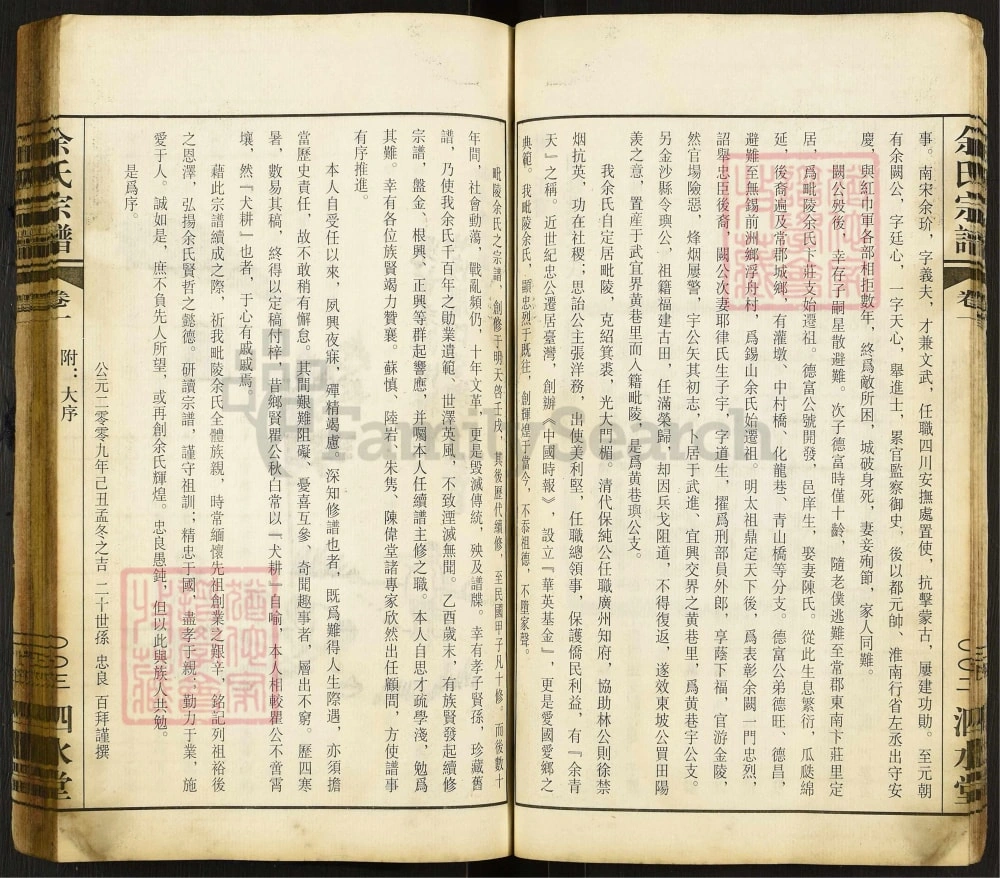 事。南宋余玠，字義夫，才兼文武，任職四川安撫處置使，抗擊蒙古，屢建功勛。至元朝
有余闕公，字廷心，一字天心，舉進士，累官監察御史，後以都元帥、淮南行省左丞出守安
慶，與紅巾軍各部相拒數年，終爲敵所困，城破身死，妻妾殉節，家人同難。
闕公殁後，幸存子嗣星散避難。次子德富時僅十齡，隨老僕逃難至常郡東南卞莊里定
居，爲毗陵余氏卞莊支始遷祖。德富公號開發，邑庠生，娶妻陳氏。從此生息繁衍，瓜瓞綿
延，後裔遍及常郡城鄉，有灌墩、中村橋、化龍巷、青山橋等分支。德富公弟德旺、德昌，
避難至無錫前洲鄉浮舟村，爲錫山余氏始遷祖。明太祖鼎定天下後，爲表彰余闕一門忠烈，
詔舉忠臣後裔，闕公次妻耶律氏生子宇，字道生，擢爲刑部員外郎，亨蔭下福，官游金陵，
然官場險惡，烽烟屢警，宇公矢其初志，卜居于武進、宜興交界之黄巷里，爲黄巷宇公支。
另金沙縣令璵公，祖籍福建古田，任滿榮歸，却因兵戈阻道，不得復返，遂效東坡公買田陽
羨之意，置産于武宜界黄巷里而入籍毗陵，是爲黄巷璵公支。
我余氏自定居毗陵，克紹箕裘，光大門楣。清代保純公任職廣州知府，協助林公則徐禁
烟抗英，功在社稷；思詒公主張洋務，出使美利堅，任職總領事，保護僑民利益，有『余青
天』之稱。近世紀忠公遷居臺灣，創辦《中國時報》，設立『華英基金』，更是愛國愛鄉之
典範。我毗陵余氏，顯忠烈于既往，創輝煌于當今，不忝祖德，不墮家聲。
毗陵余氏之宗譜，創修于明天啓壬戌，其後歷代續修，至民國甲子凡十修。而後數十
年間，社會動蕩，戰亂頻仍，十年文革，更是毀滅傳統，殃及譜牒。幸有孝子賢孫，珍藏舊
譜，乃使我余氏千百年之勛業遺範、世澤英風，不致湮滅無聞。乙酉歲末，有族賢發起續修
宗譜，盤金、根興、正興等群起響應，并囑本人任續譜主修之職。本人自思才疏學淺，勉爲
其難。幸有各位族賢竭力贊襄。蘇慎、陸岩、朱隽、陳偉堂諸專家欣然出任顧問，方使譜事
有序推進。
本人自受任以來，夙興夜寐，殫精竭慮，深知修譜也者，既爲難得人生際遇，亦須擔
當歷史責任，故不敢稍有懈怠。其間艱難阻礙、憂喜互參、奇聞趣事者，層出不窮。歷四寒
暑，數易其稿，終得以定稿付梓。昔鄉賢瞿公秋白常以『犬耕』自喻，本人相較瞿公不啻霄
壤，然『犬耕』也者，于心有戚戚焉。
藉此宗譜續成之際，祈我毗陵余氏全體族親，時常緬懷先祖創業之艱辛，銘記列祖裕後
之恩澤，弘揚余氏賢哲之懿德。研讀宗譜，謹守祖訓；精忠于國，盡孝于親，勤力于業，施
愛于人。誠如是，庶不負先人所望，或再創余氏輝煌。忠良愚鈍，但以此與族人共勉。
是爲序。
公元二零零九年己丑孟冬之吉 二十世孫 忠良 百拜謹撰
余氏宗譜 卷一 附：大序 〇〇三 泗水堂
余氏宗譜 卷一 泗水堂
FamilySearch